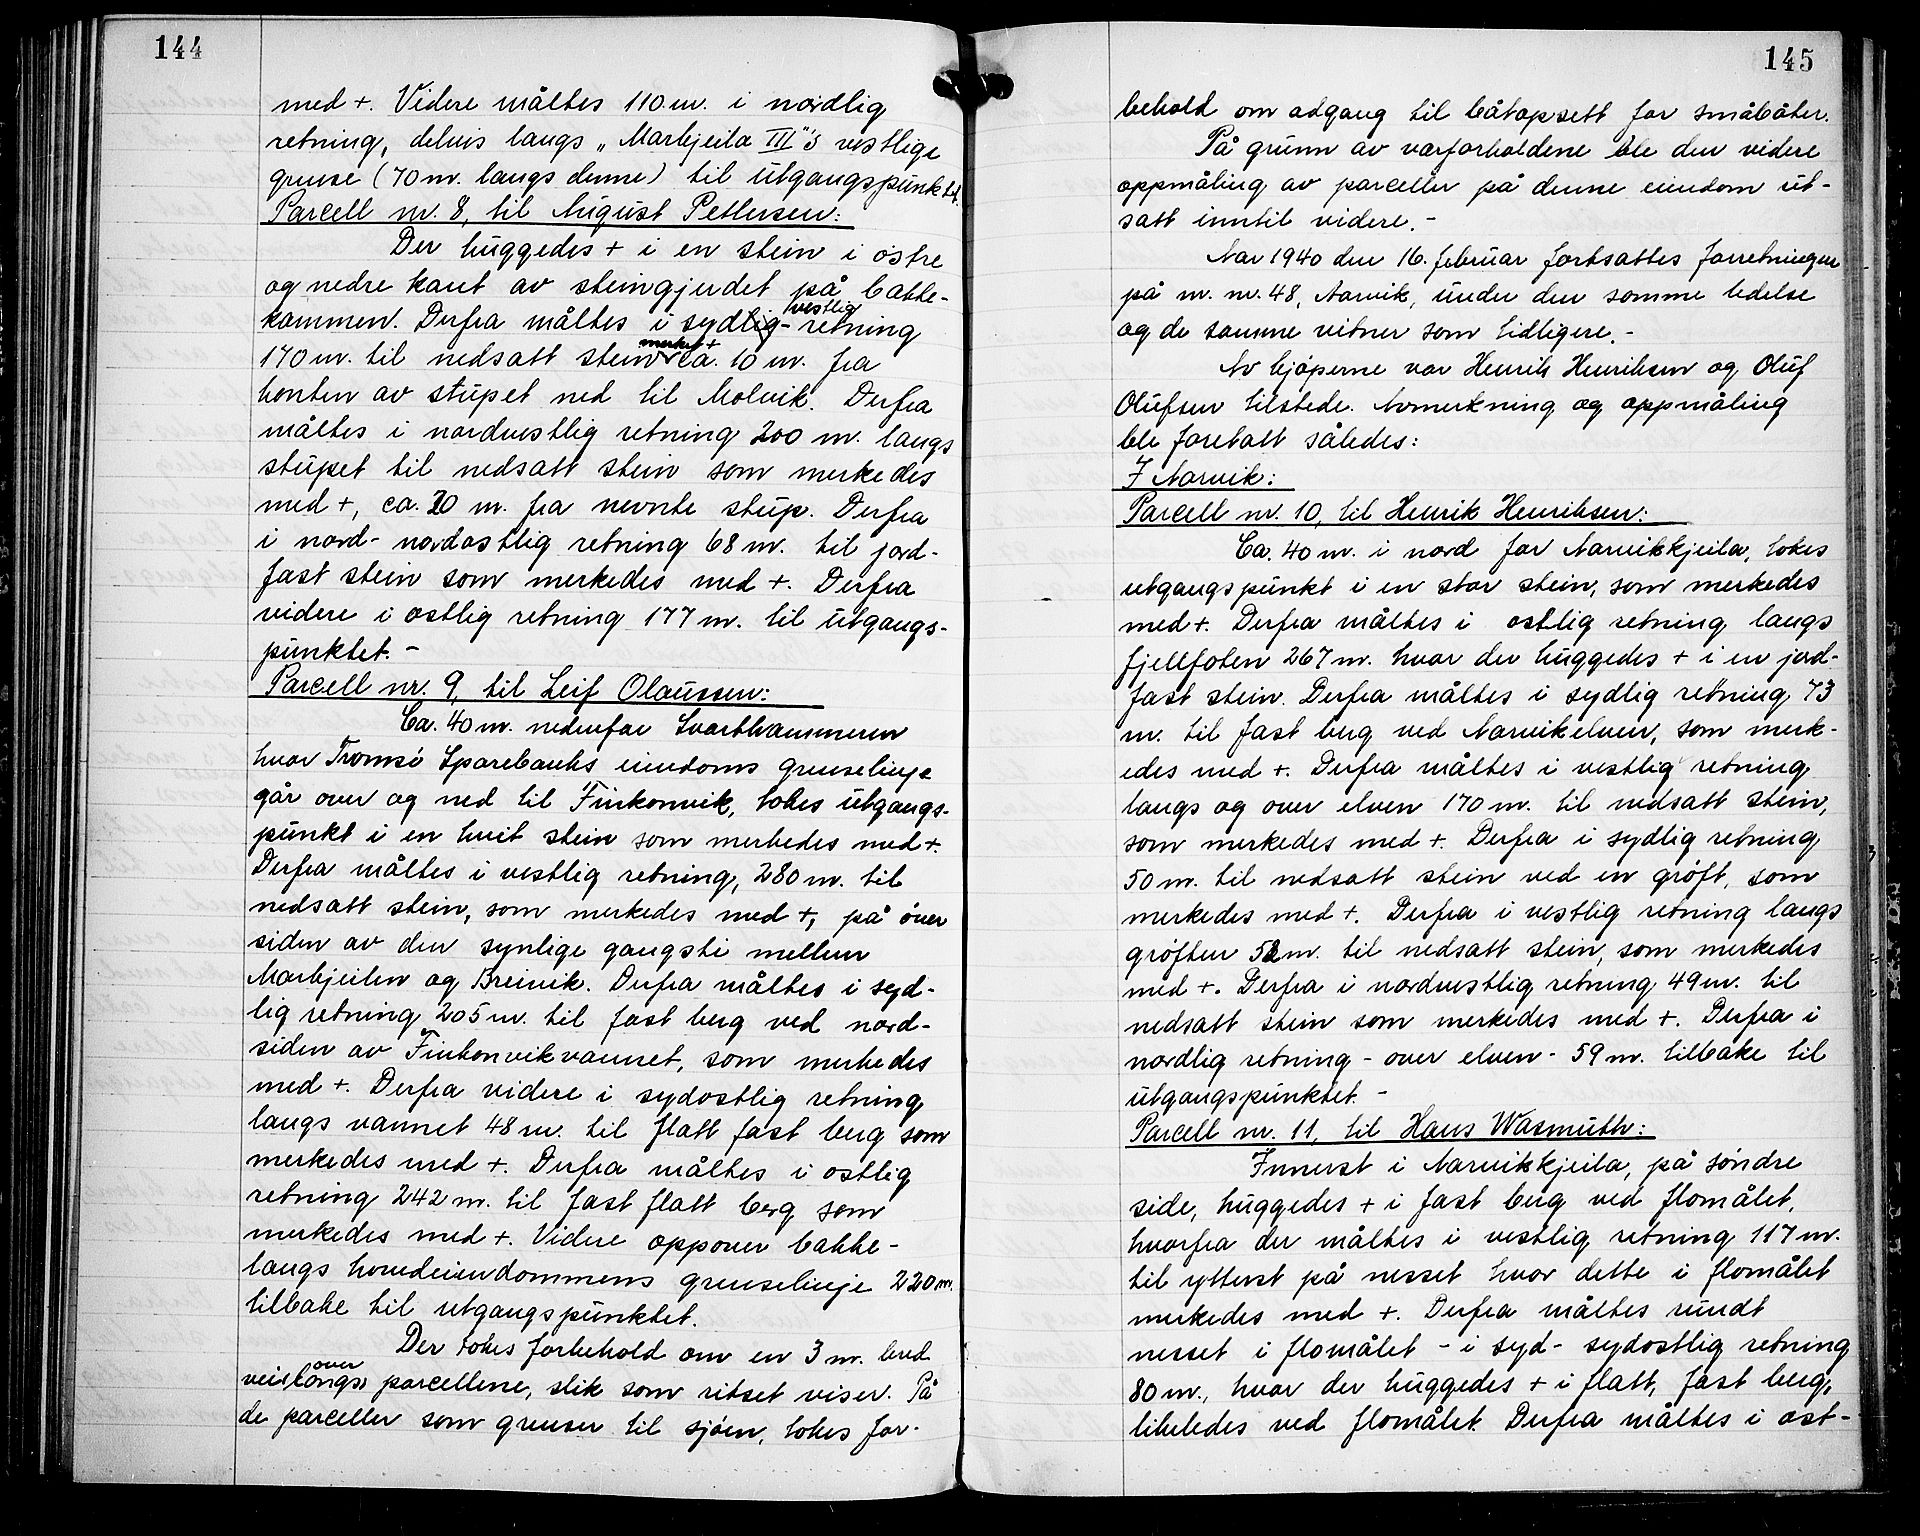 144
med +. Videre måltes 110 m. i nordlig
retning, delvis langs „Markjeila III"'s vestlige
grense (70 m. langs denne) til utgangspunktet.
Parcell nr. 8, til August Pettersen:
Der huggedes + i en stein i østre
og nedre kant av steingjerdet på bakke-
kammen. Derfra måltes i sydlig- vestlig retning
170 m. til nedsatt stein merket + ca. 10 m. fra
kanten av stupet ned til Molvik. Derfra
måltes i nordvestlig retning 200 m. langs
stupet til nedsatt stein som merkedes
med +, ca. 20 m. fra nevnte stup. Derfra
i nord- nordøstlig retning 68 m. til jord-
fast stein som merkedes med +. Derfra
videre i østlig retning 177 m. til utgangs-
punktet. -
Parcell nr. 9, til Leif Olaussen:
Ca. 40 m. nedenfor Svarthammeren
hvor Tromsö Sparebanks eiendoms grenselinje
går over og ned til Finkonvik, tokes utgangs-
punkt i en hvit stein som merkedes med +.
Derfra måltes i vestlig retning, 280 m. til
nedsatt stein, som merkedes med +, på över
siden av den synlige gangsti mellem
Markjeilen og Breivik. Derfra måltes i syd-
lig retning 205 m. til fast berg ved nord-
siden av Finkonvikvannet, som merkedes
med +. Derfra videre i sydostlig retning
langs vannet 48 m. til flatt fast berg som
merkedes med +. Derfra måltes i ostlig
retning 242 m. til fast flatt berg som
merkedes med +. Videre oppover bakke-
langs hovedeiendommens grenselinje 220 m.
tilbake til utgangspunktet.
Der tokes forbehold om en 3 m. bred
vei langs over parcellene, slik som risset viser. På
de parceller som grenser til sjøen, tokes for-
145
behold om adgang til båtopsett for småbåter.
På grunn av værforholdene ble den videre
oppmåling av parceller på denne eiendom ut-
satt inntil videre. -
Aar 1940 den 16. februar fortsattes forretningen
på m. nr. 48, Aarvik, under den samme ledelse
og de samme vitner som tidligere. -
Av kjøperne var Henrik Henriksen og Oluf
Olufsen tilstede. Avmerkning og oppmåling
ble foretatt således:
I Aarvik:
Parcell nr. 10, til Henrik Henriksen:
Ca. 40 m. i nord for Aarvikkjeila, tokes
utgangspunkt i en stor stein, som merkedes
med +. Derfra måltes i ostlig retning langs
fjellfoten 267 m. hvor der huggedes + i en jord-
fast stein. Derfra måltes i sydlig retning 73
m. til fast berg ved Aarvikelven, som merk-
edes med +. Derfra måltes i vestlig retning
langs og over elven 170 m. til nedsatt stein,
som merkedes med +. Derfra i sydlig retning
50 m. til nedsatt stein ved en grøft, som
merkedes med +. Derfra i vestlig retning langs
grøften 52 m. til nedsatt stein, som merkedes
med +. Derfra i nordvestlig retning 49 m. til
nedsatt stein som merkedes med +. Derfra i
nordlig retning - over elven - 59 m. tilbake til
utgangspunktet. -
Parcell nr. 11, til Hans Wasmuth:
Innerst i Aarvikkjeila, på søndre
side, huggedes + i fast berg ved flomålet,
hvorfra der måltes i vestlig retning 117 m.
til ytterst på nesset hvor dette i flomålet
merkedes med +. Derfra måltes rundt
nesset i flomålet - i syd- sydostlig retning
80 m., hvor der huggedes + i flatt, fast berg,
likeledes ved flomålet. Derfra måltes i ost-